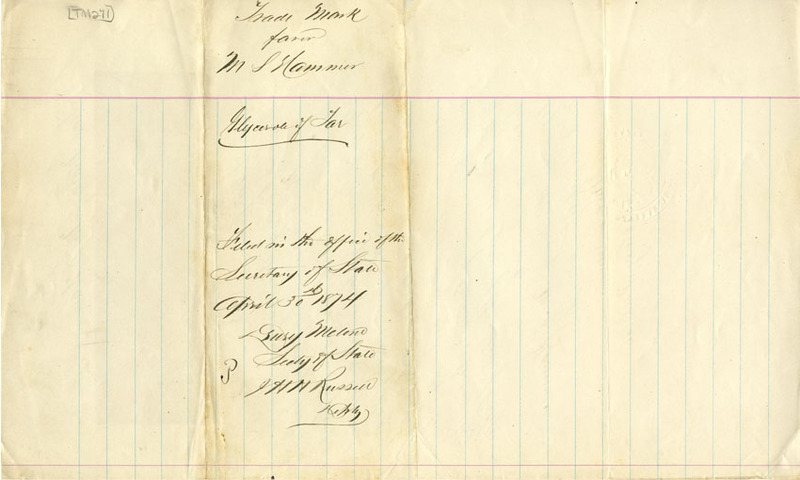 [TM271]
Trade Mark
favor
M S Hammer
Glycerole of Tar
Filed in the office of the
Secretary of State
April 30th 1874
Drury Melone
Secty of State
J H H Russell